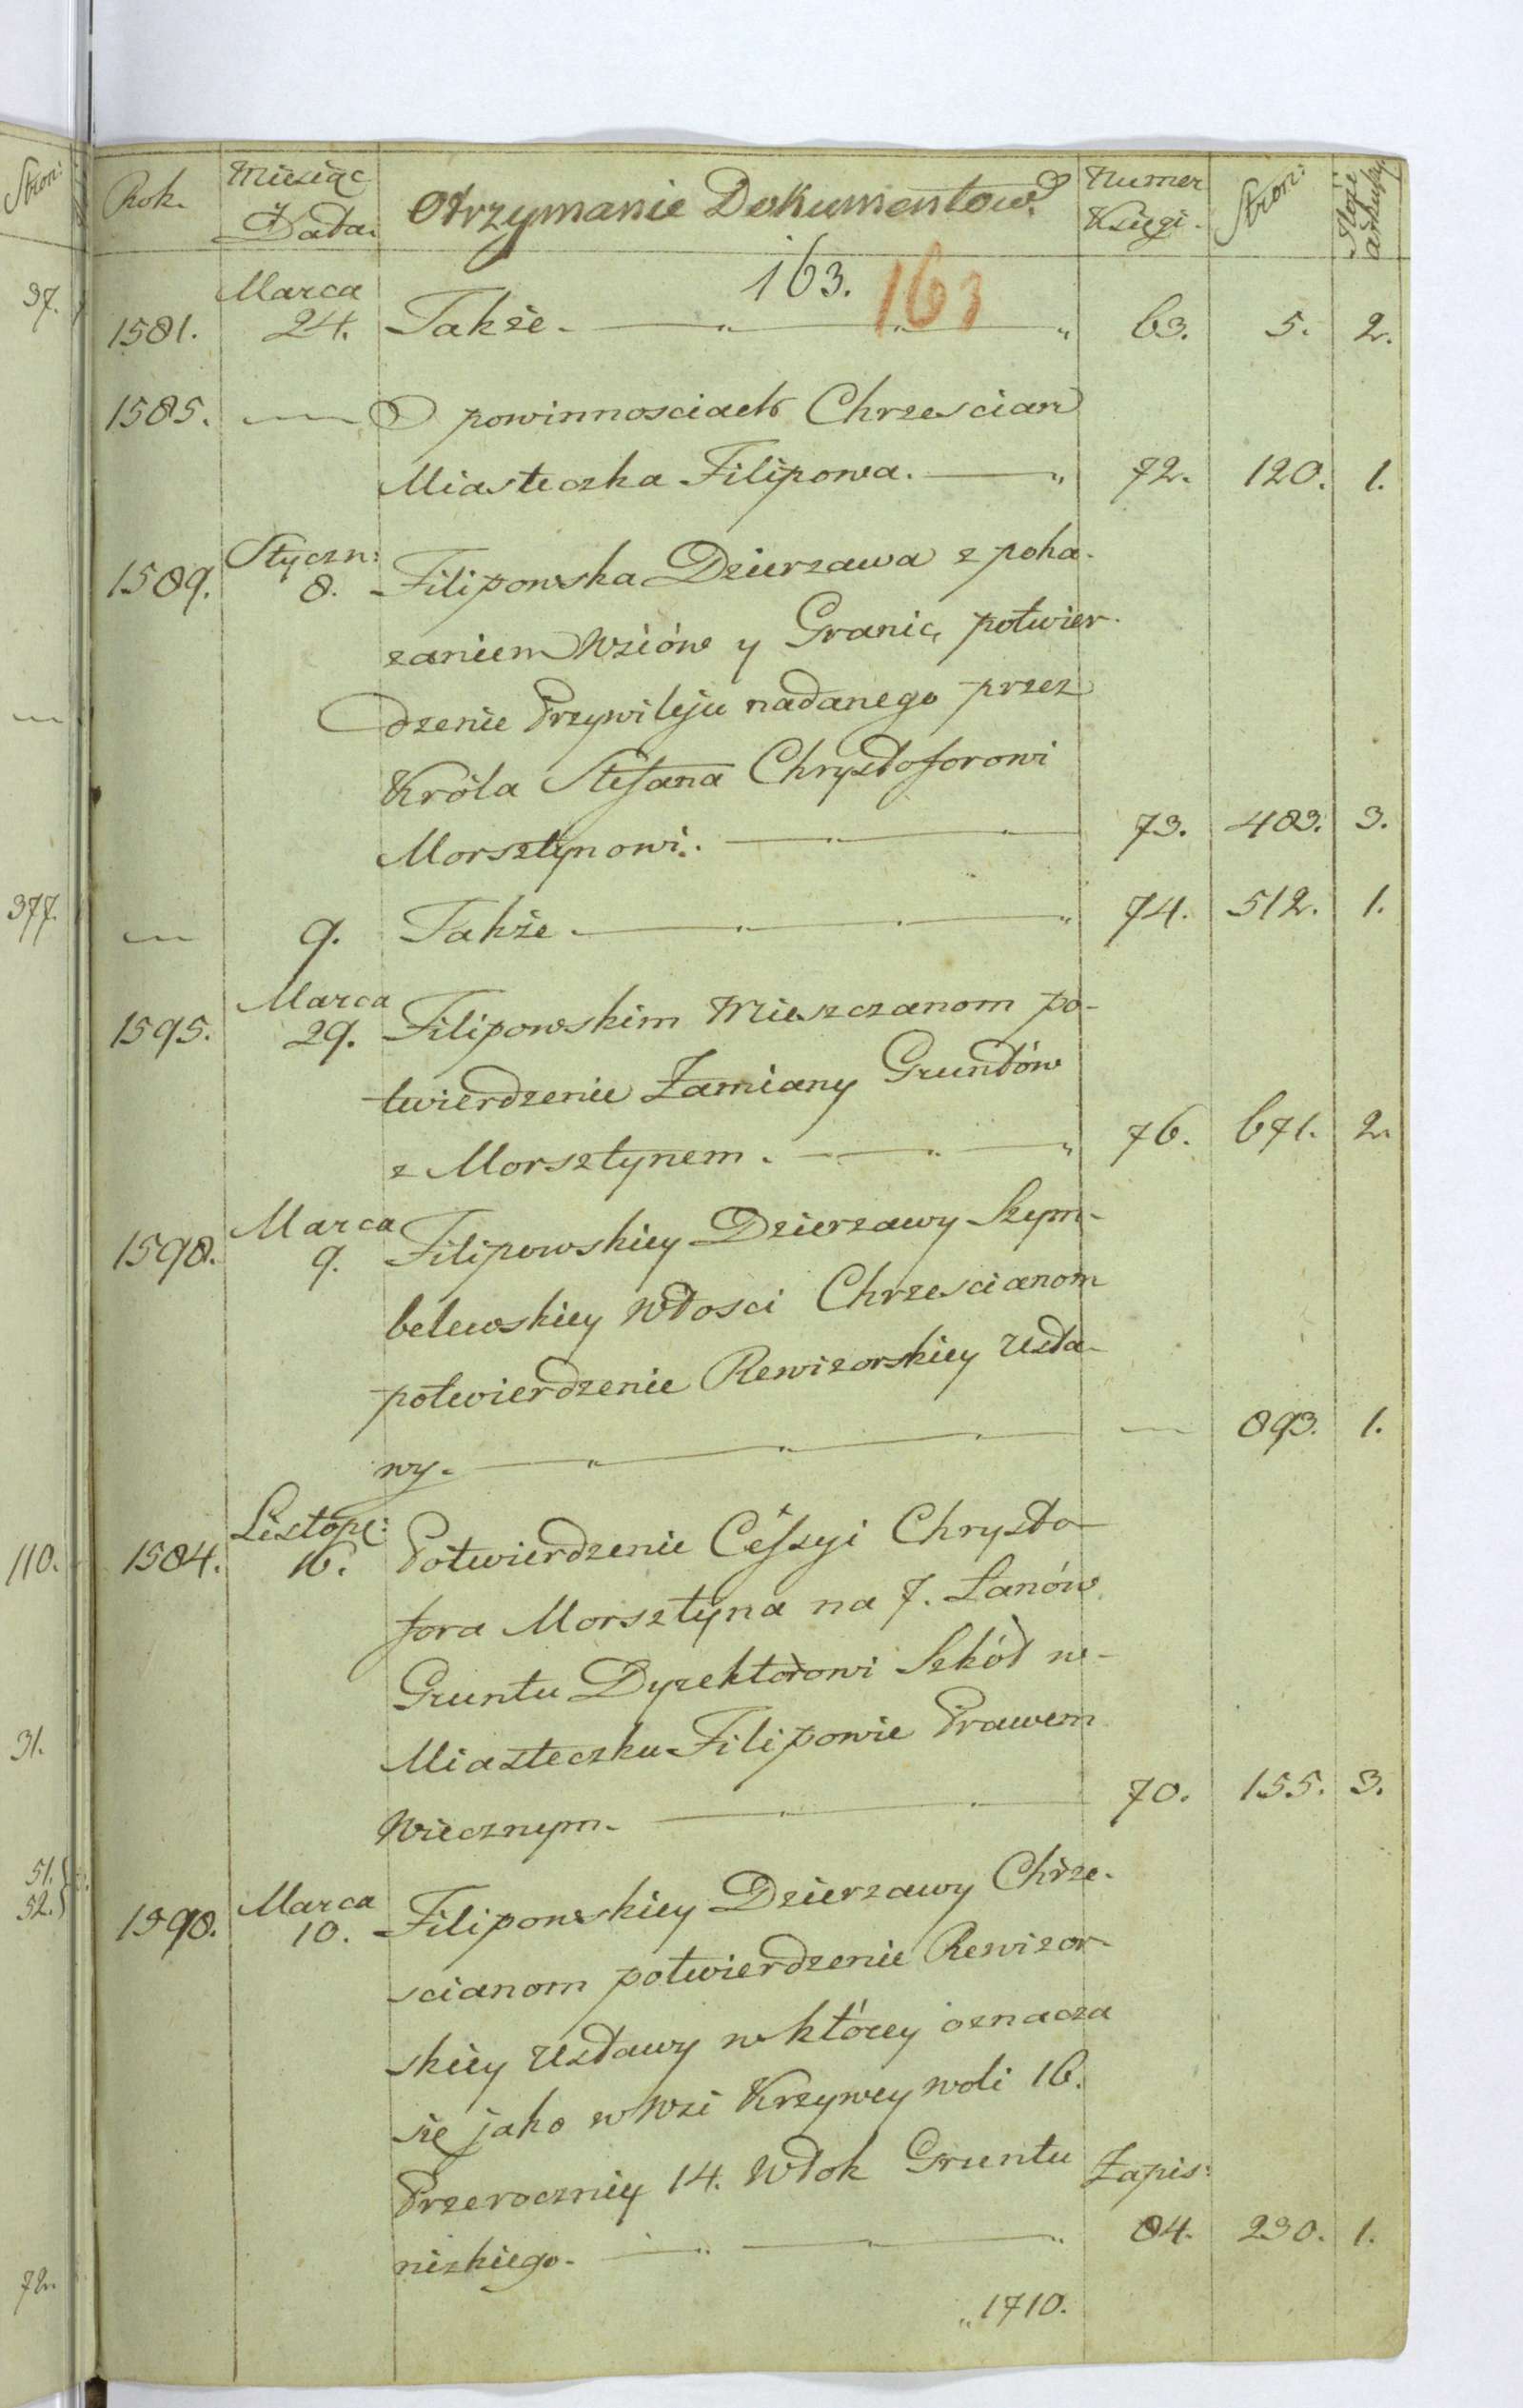 Stron:
Rok.
Miesiąc
Data.
Otrzymanie Dokumentow.
Numer
Księgi.
Stron:
arkuszy
163. 163
37.
1581. Marca
24. Także. 63. 5. 2.
1585. O powinnosciach Chrzescian
Miasteczka Filipowa. 72. 120. 1.
1589. Styczn:
8. Filipowska Dzierzawa z poka-
zaniem Wsiów y Granic, potwier-
dzenie Przywileju nadanego przez
Króla Stefana Chrysztoforowi
Morsztynowi. 73. 483. 3.
377.
— 9. Także. 74. 512. 1.
1595. Marca
29. Filipowskim Mieszczanom po-
twierdzenie Zamiany Gruntów
z Morsztynem. 76. 671. 2.
1598. Marca
9. Filipowskiey Dzierzawy Szym-
belewskiey Włosci Chrzescianom
potwierdzenie Rewizorskiey Usta-
wy. — 893. 1.
110.
1584. Listop:
16. Potwierdzenie Cessyi Chryszto-
fora Morsztyna na 7. Łanów
Gruntu Dyrektorowi Szkół w-
Miasteczku Filipowie Prawem
Wiecznym. 70. 155. 3.
31.
51.
52.
1598. Marca
10. Filipowskiey Dzierzawy Chrze-
scianom potwierdzenie Rewizor-
skiey Ustawy w którey oznacza
się jako w Wsi Krzywey woli 16.
Przeroczniey 14. Włok Gruntu Zapis:
nizkiego. 84. 230. 1.
72.
„1710.